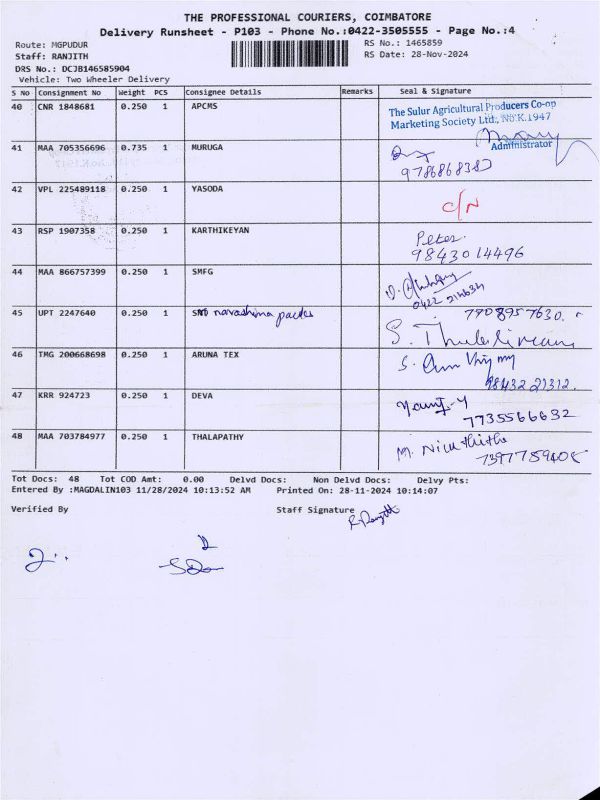 THE PROFESSIONAL COURIERS, COIMBATORE
Delivery Runsheet - P103 - Phone No.:0422-3505555 - Page No.:4
Route: MGPUDUR RS No.: 1465859
Staff: RANJITH RS Date: 28-Nov-2024
DRS No.: DCJB146585904
Vehicle: Two Wheeler Delivery
S No Consignment No Weight PCS Consignee Details Remarks Seal & Signature
40 CNR 1848681 0.250 1 APCMS
The Sulur Agricultural Producers Co-op
Marketing Society Ltd., No.K.1947
Administrator
41 MAA 705356696 0.735 1 MURUGA
9786868382
42 VPL 225489118 0.250 1 YASODA C/N
43 RSP 1907358 0.250 1 KARTHIKEYAN Peter.
9843014496
44 MAA 866757399 0.250 1 SMFG
45 UPT 2247640 0.250 1 narashima 7708957630.
46 TMG 200668698 0.250 1 ARUNA TEX
98432 21312.
47 KRR 924723 0.250 1 DEVA
7735566632
48 MAA 703784977 0.250 1 THALAPATHY
Tot Docs: 48 Tot COD Amt: 0.00 Delvd Docs: Non Delvd Docs: Delvy Pts:
Entered By :MAGDALIN103 11/28/2024 10:13:52 AM Printed On: 28-11-2024 10:14:07
Verified By Staff Signature